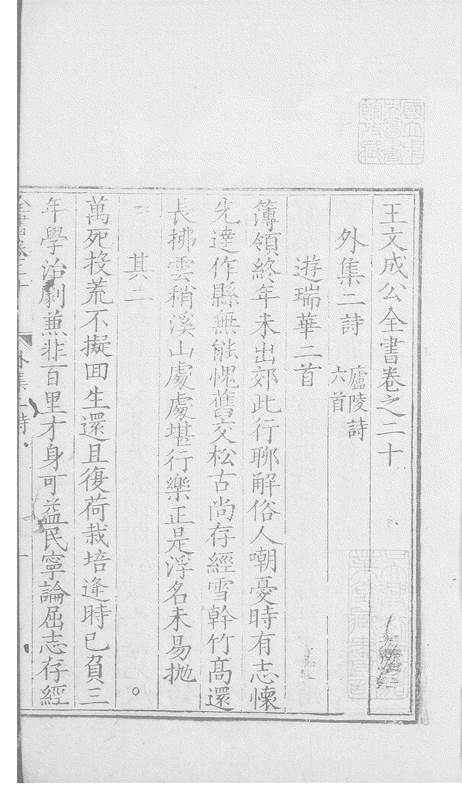 王文成公全書卷之二十
外集二詩 廬陵詩六首
遊瑞華二首
簿領終年未出郊此行聊解俗人嘲憂時有志懷
先達作縣無能愧舊交松古尚存經雪幹竹髙還
長拂雲稍溪山處處堪行樂正是浮名未易拋
其二
萬死投荒不擬囬生還且復荷栽培逢時已負三
年學治劇兼非百里才身可益民寧論屈志存經